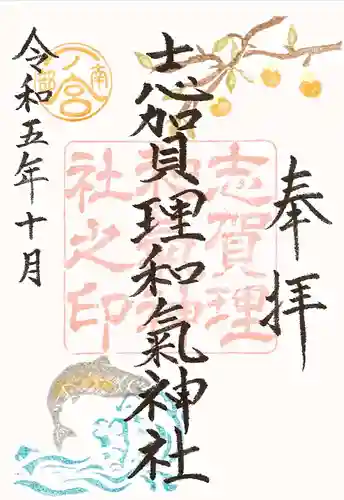 奉拝
志賀理和氣神社
令和五年十月
志賀理
和氣神
社之印
一ノ宮
南